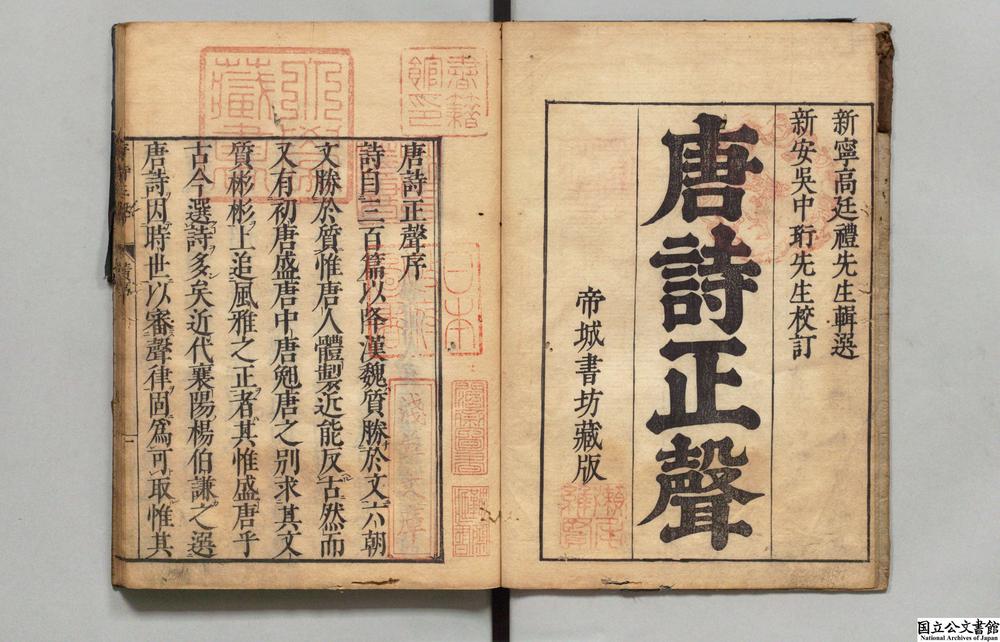 新寧高廷禮先生輯選
新安吳中珩先生校訂
唐詩正聲
帝城書坊藏版
唐詩正聲序
詩自三百篇以降漢魏質勝於文六朝
文勝於質惟唐人體製近能反古然而
又有初唐盛唐中唐晚唐之別求其文
質彬彬上追風雅之正者其惟盛唐乎
古今選詩多矣近代襄陽楊伯謙之選
唐詩因時世以審聲律固為可取惟其
書籍
館印
日本
藏書
国立公文書館
National Archives of Japan